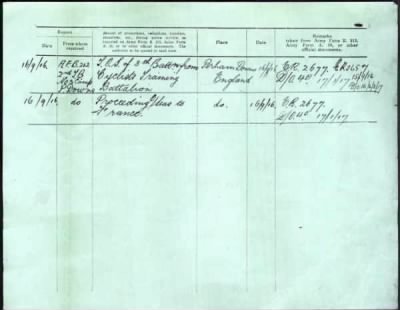 Report
Date
From whom received
Record of promotions, reductions, transfers, casualties, etc., during active service, as reported on Army Form B. 213, Army Form A. 36, or in other official documents. The authority to be quoted in each case.
Place
Date
Remarks
taken from Army Form B. 213, Army Form A. 36, or other official documents.
16/9/16.
T.O.S. of 3rd Battn from
Perham Downs
E.R. 2677.
Cyclists Training
England
D/O.40 17/1/17
Downs
Battalion
16/9/16.
do
Proceeding O/seas to
do.
16/9/16.
E.R. 2677.
France.
D/O.40 17/1/17